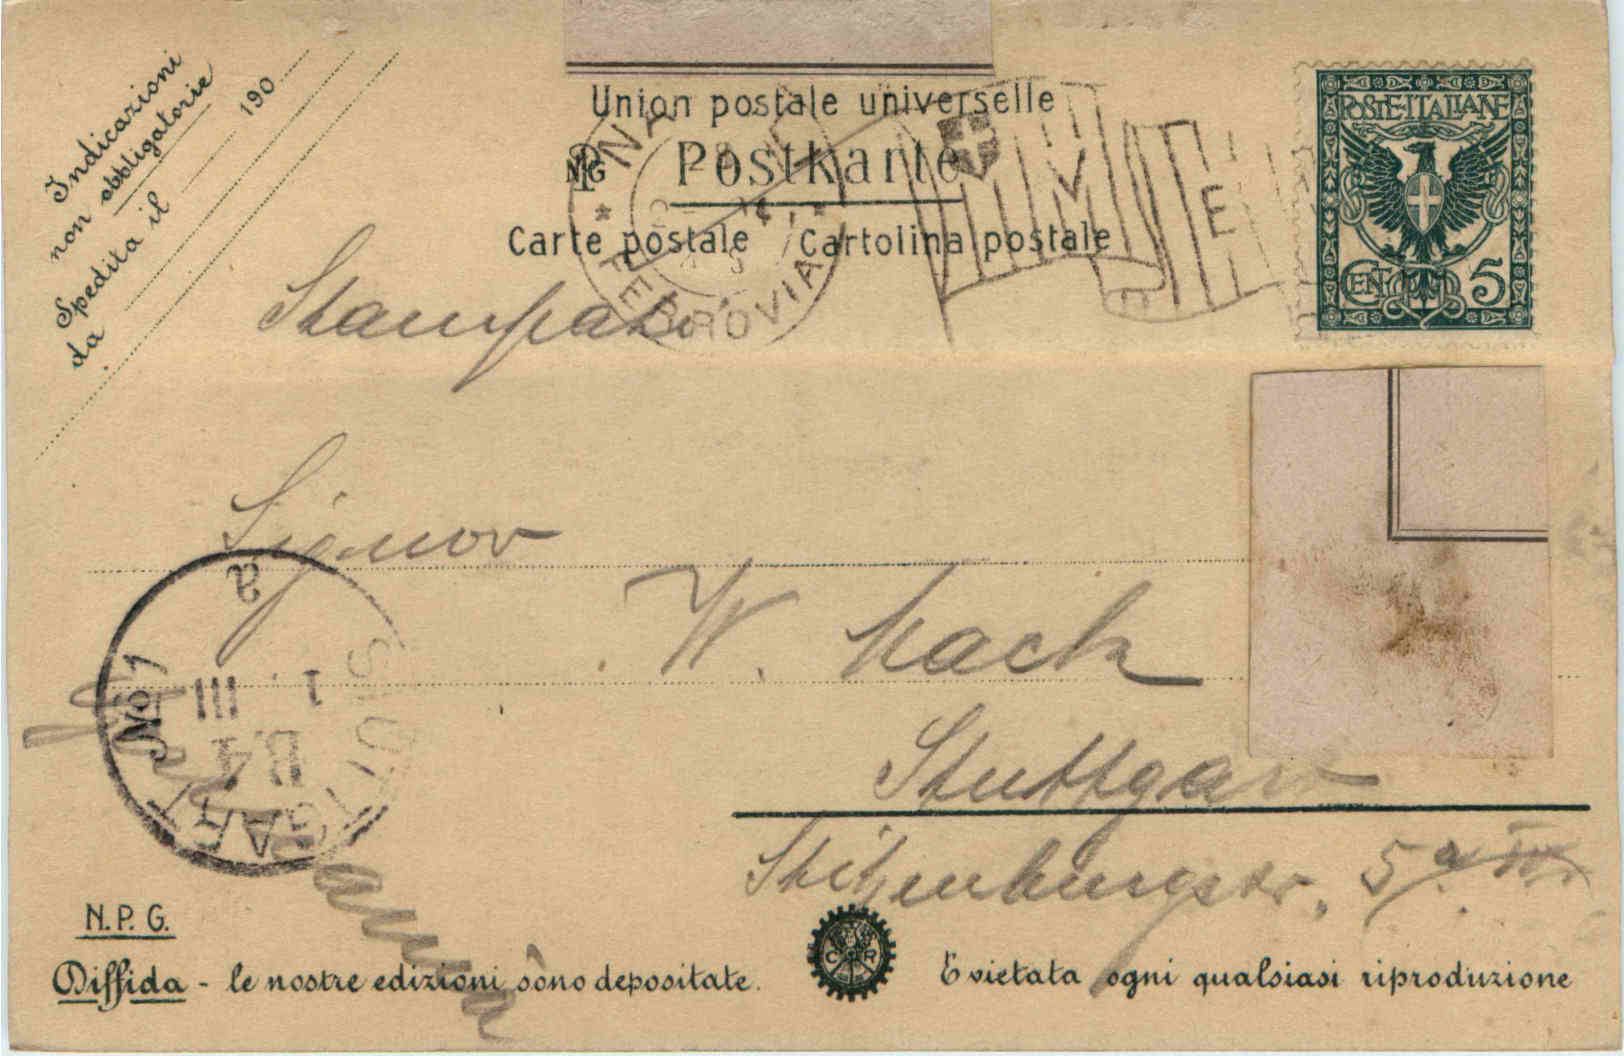 Indicazioni
non obbligatorie
Spedita il 190
da
Union postale universelle
NPG Postkarte
Carte postale Cartolina postale
POSTE·ITALIANE
CENT. 5
FERROVIA
W
E
Stampate
Signor
W. Mack
Stuttgart
Stitzenburgstr. 5a IV.
a
STUTTGART No 1
1.
III
N.P.G.
Diffida - le nostre edizioni sono depositate.
C R
E vietata ogni qualsiasi riproduzione